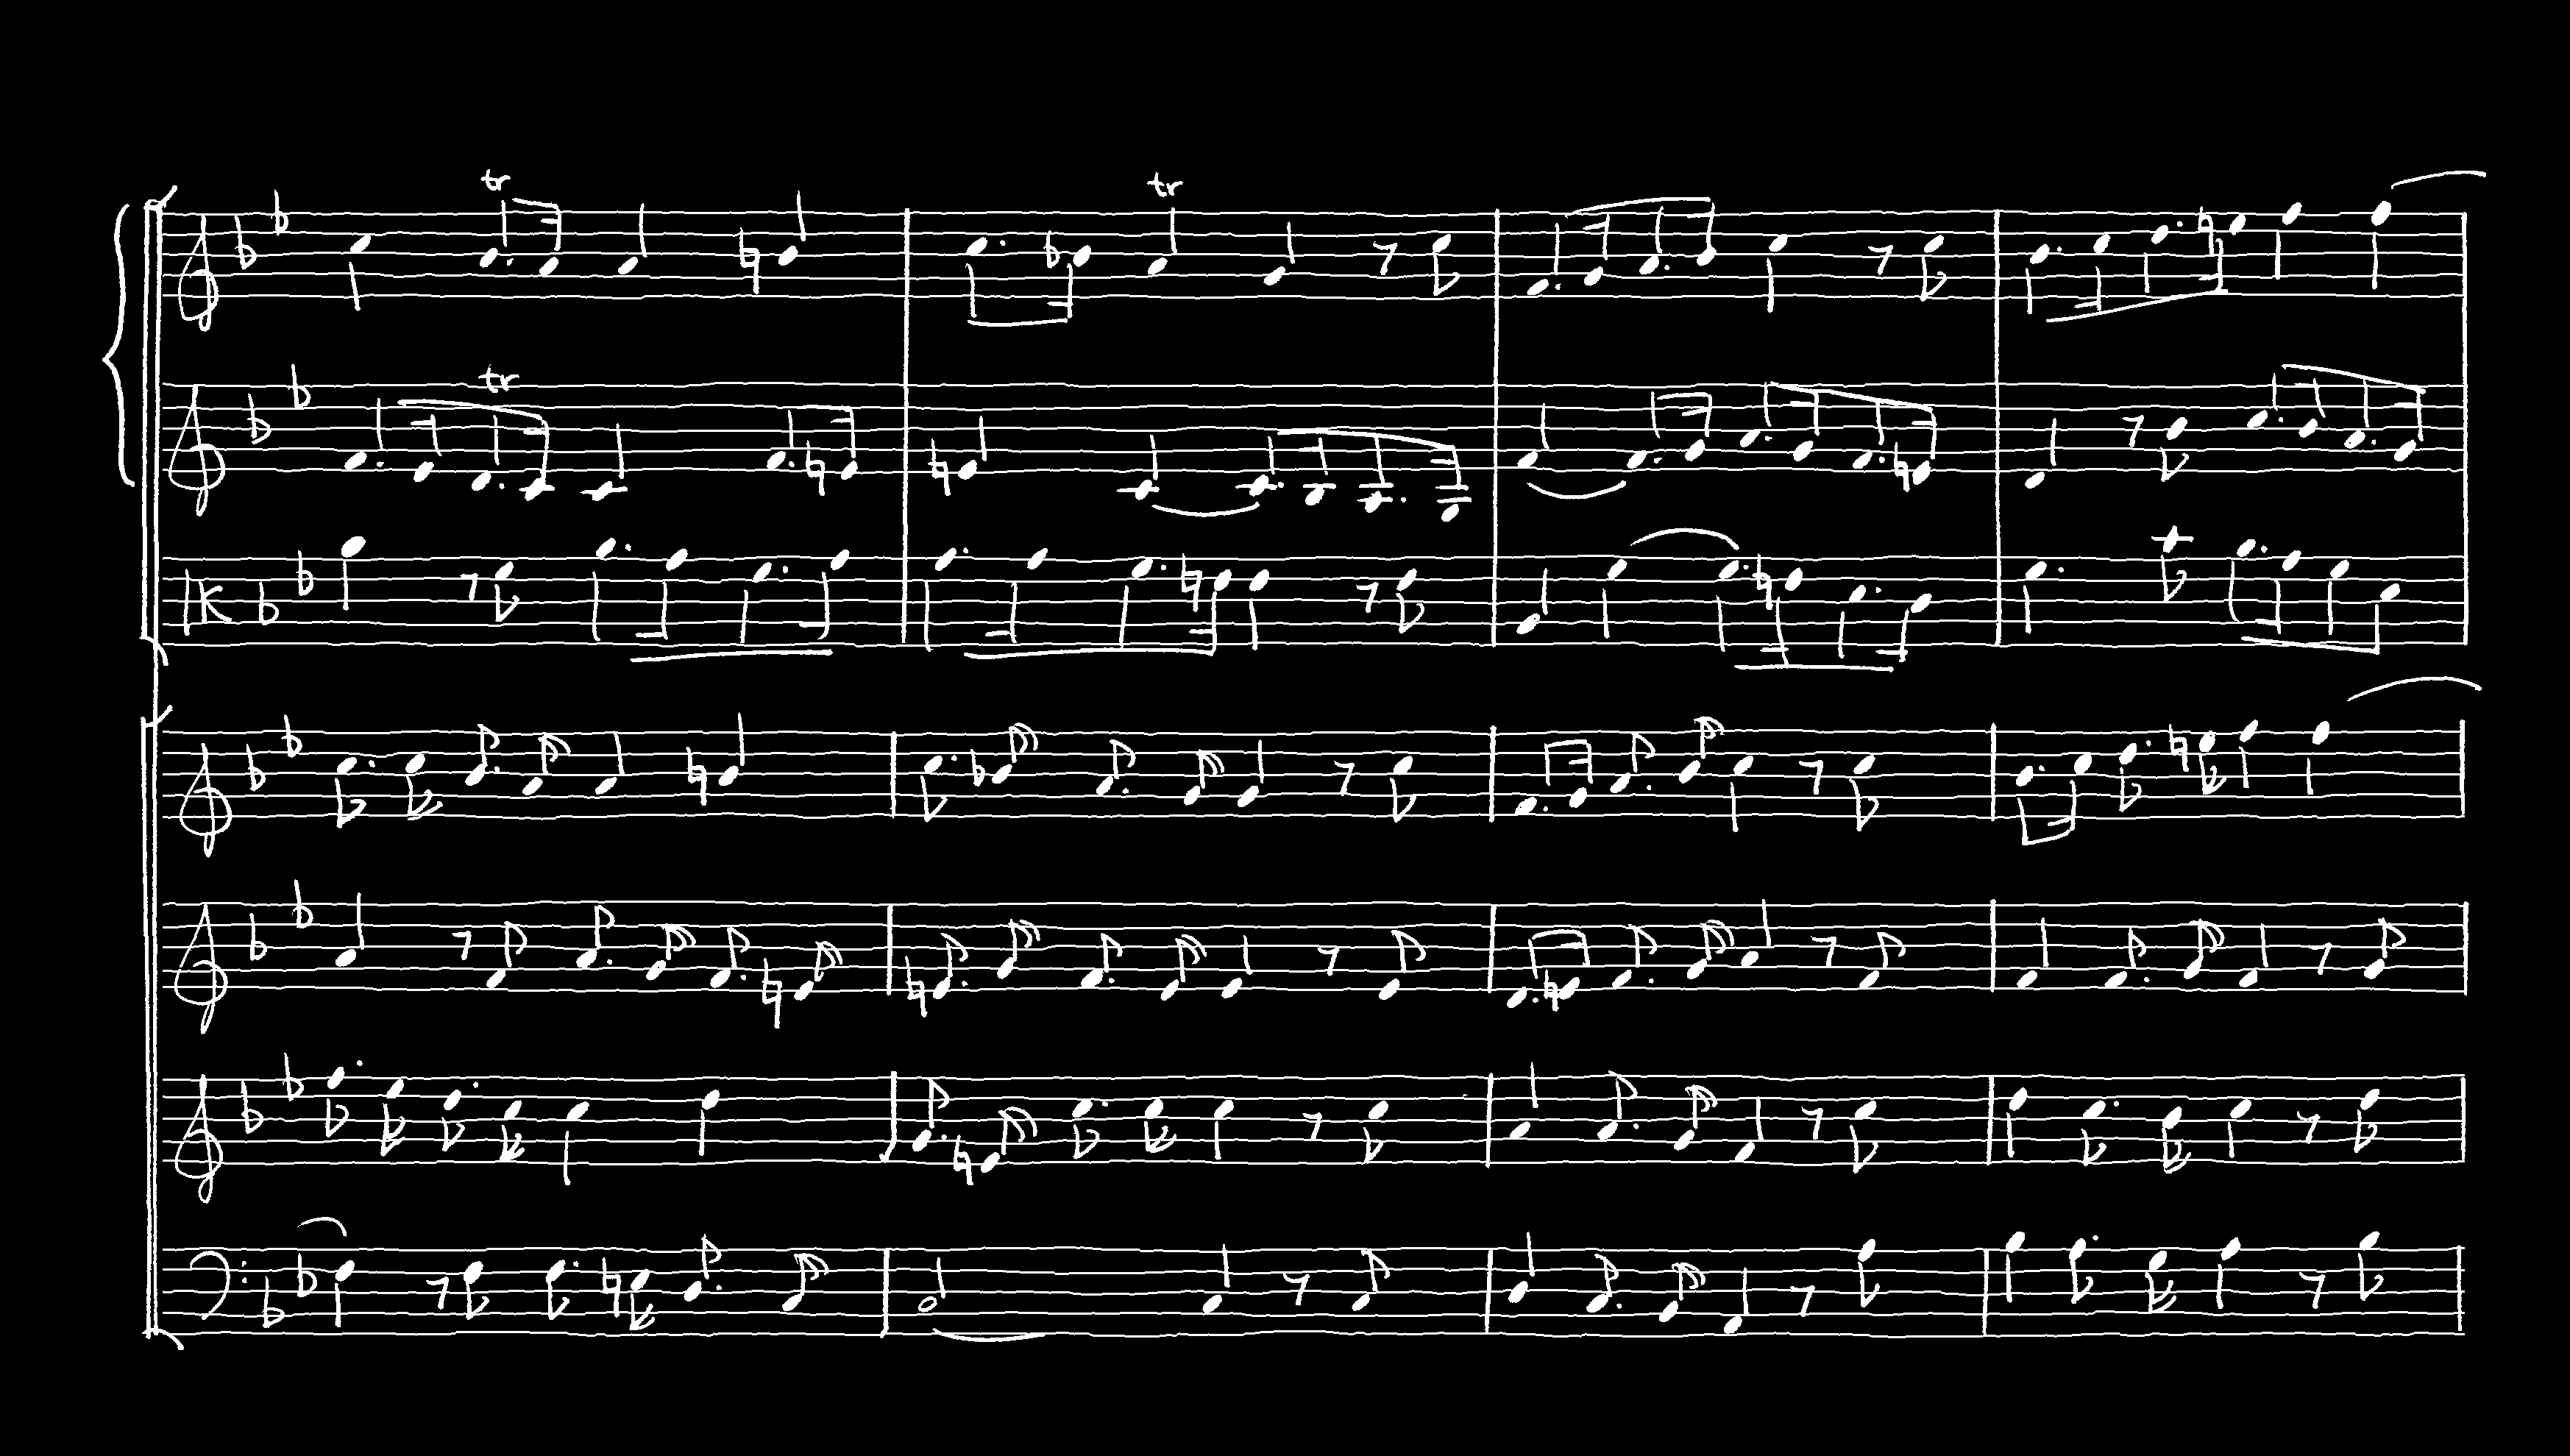 tr tr
tr